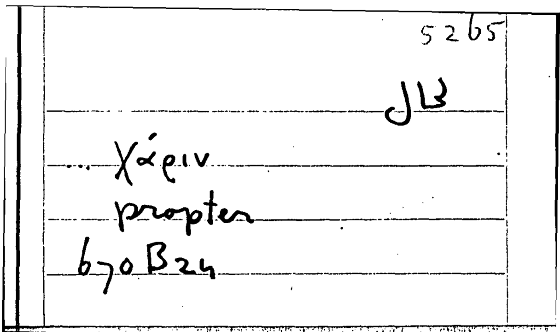 5265
JB
... χάριν
propter
670 B 24